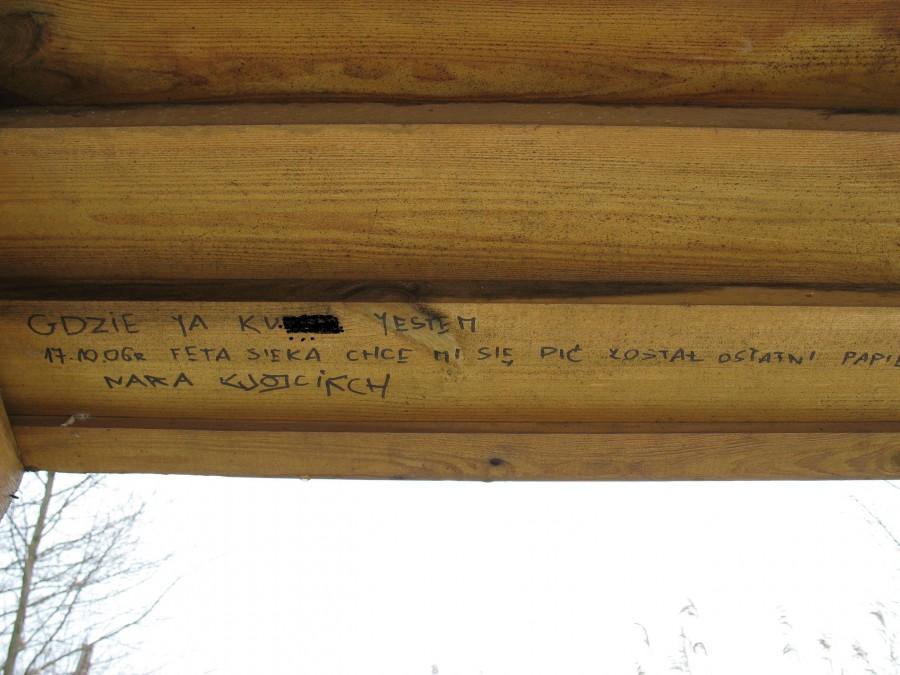 GDZIE YA KU YESTEM
17.10.06R FETA SIEKA CHCE MI SIĘ PIĆ ZOSTAŁ OSTATNI PAPIE
NARA